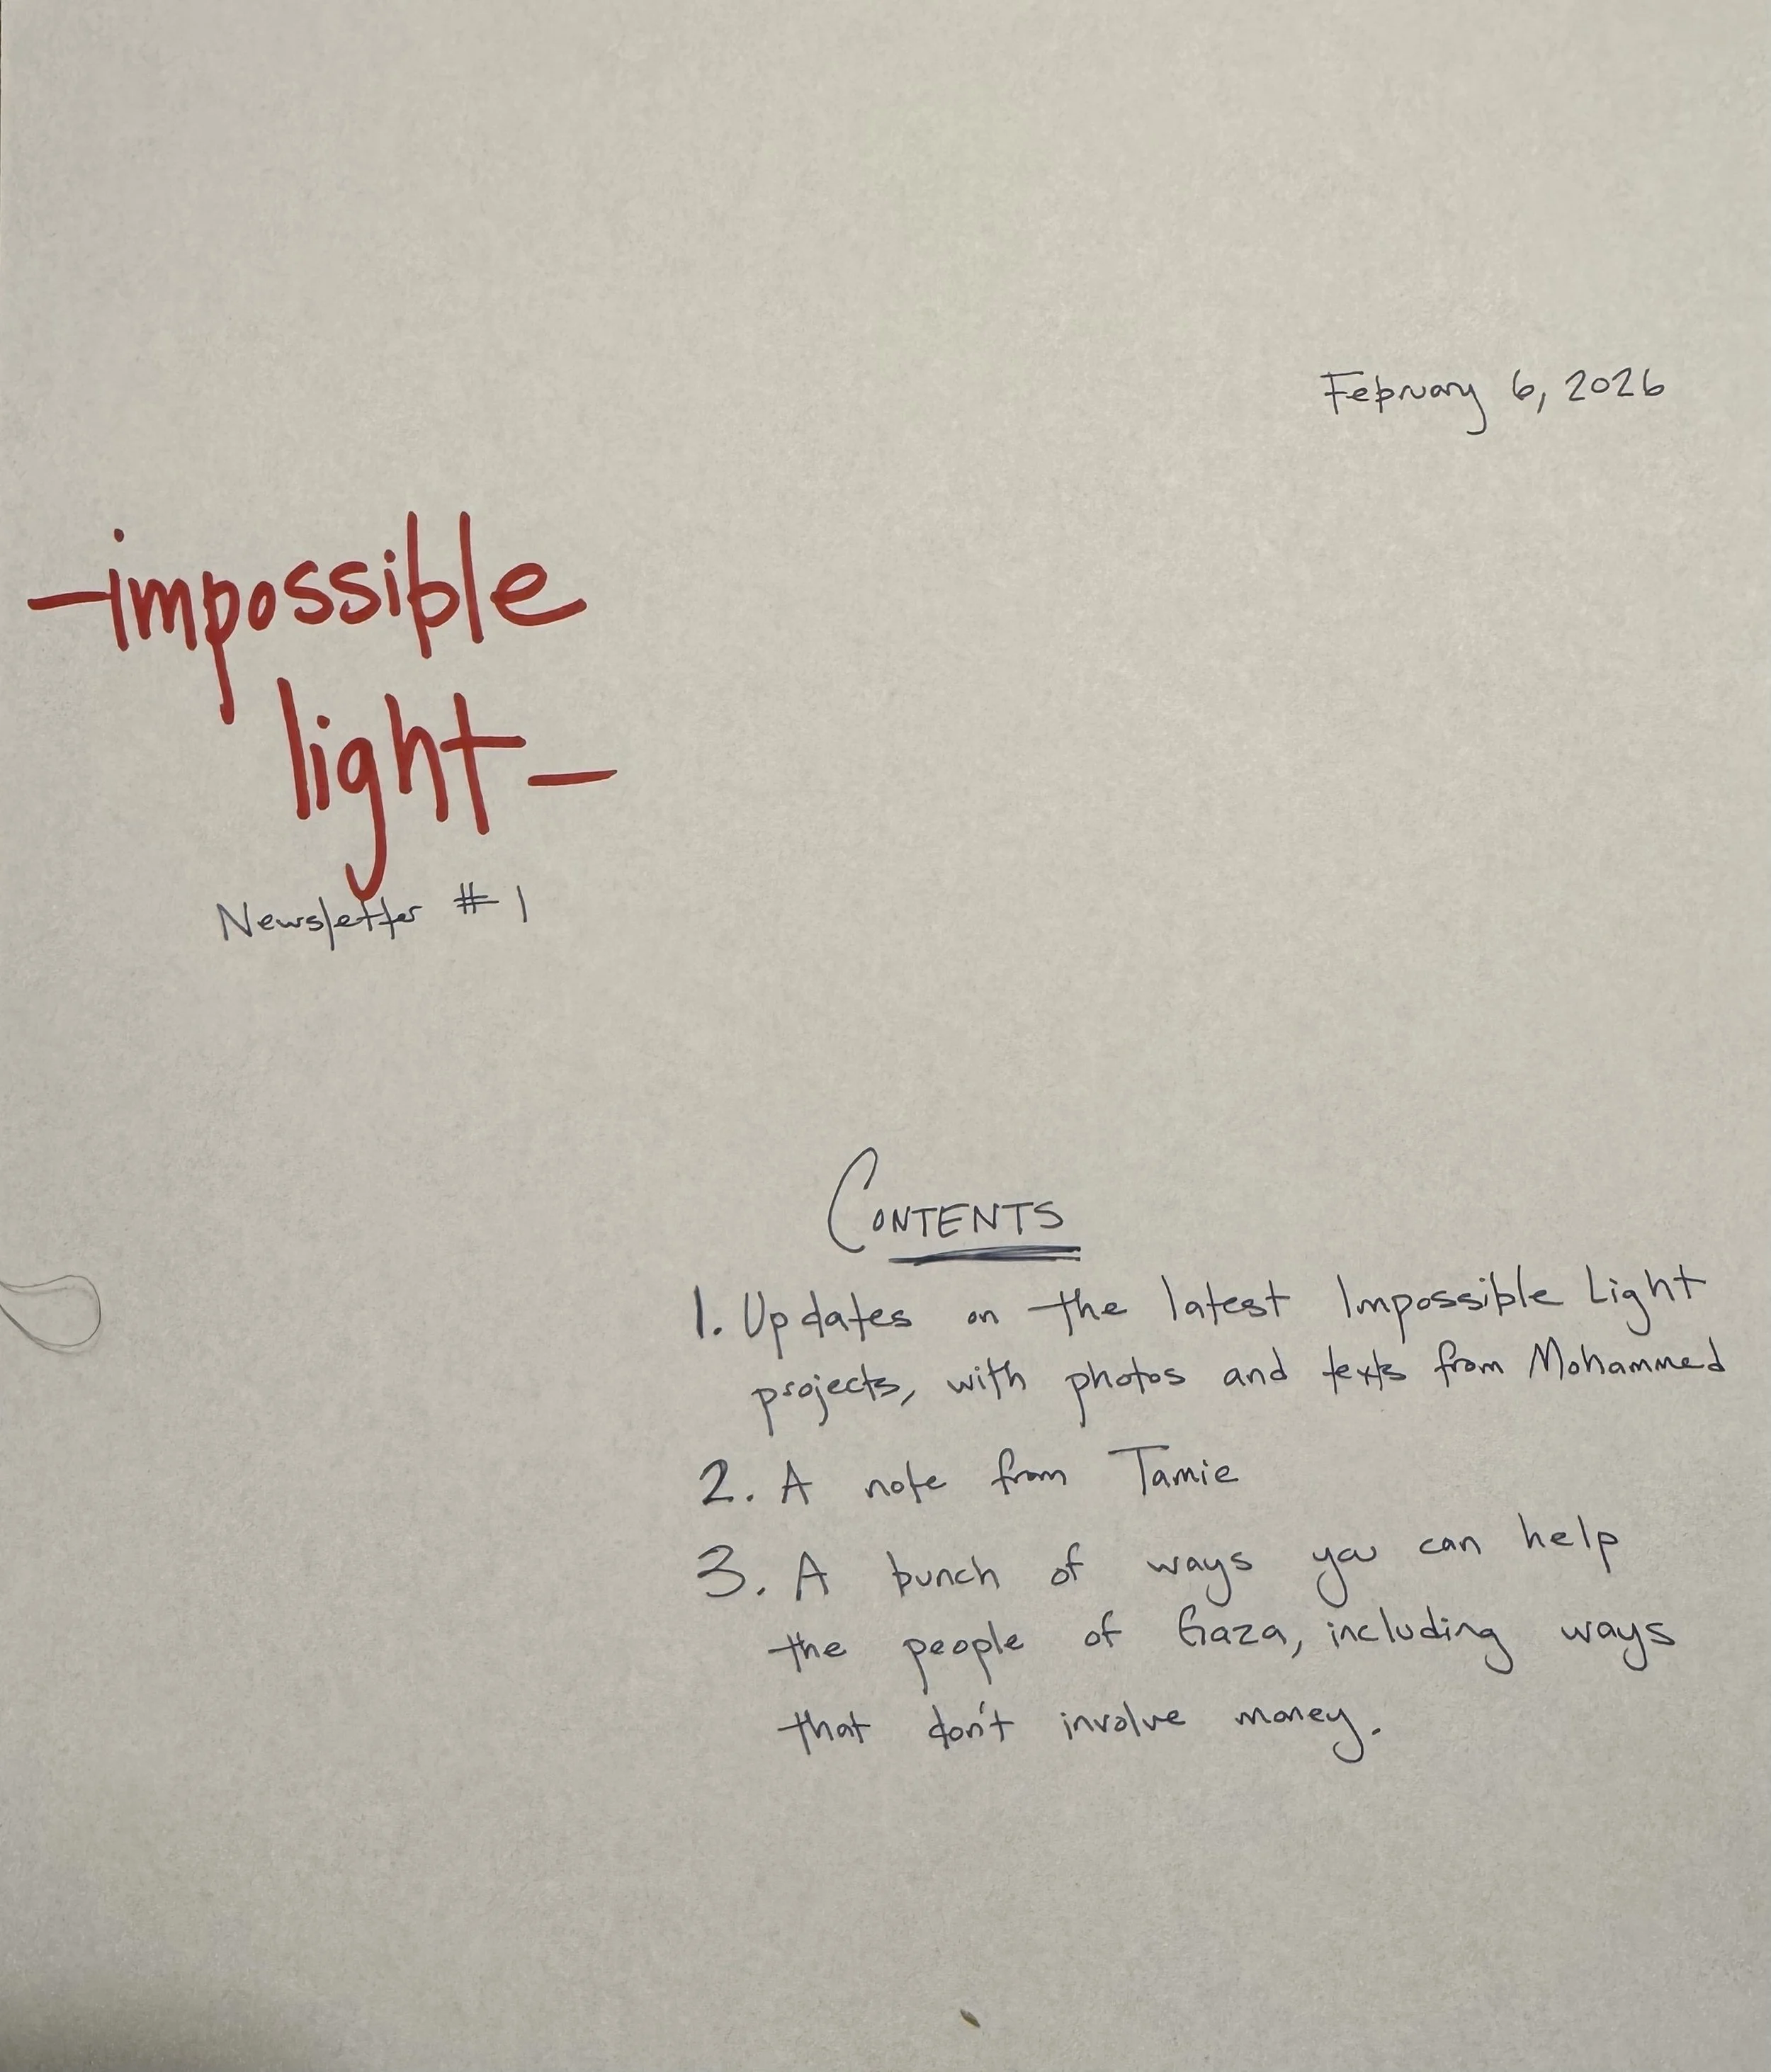 February 6, 2026
-impossible
light-
Newsletter #1
CONTENTS
1. Updates on the latest Impossible Light
projects, with photos and texts from Mohammed
2. A note from Tamie
3. A bunch of ways you can help
the people of Gaza, including ways
that don't involve money.